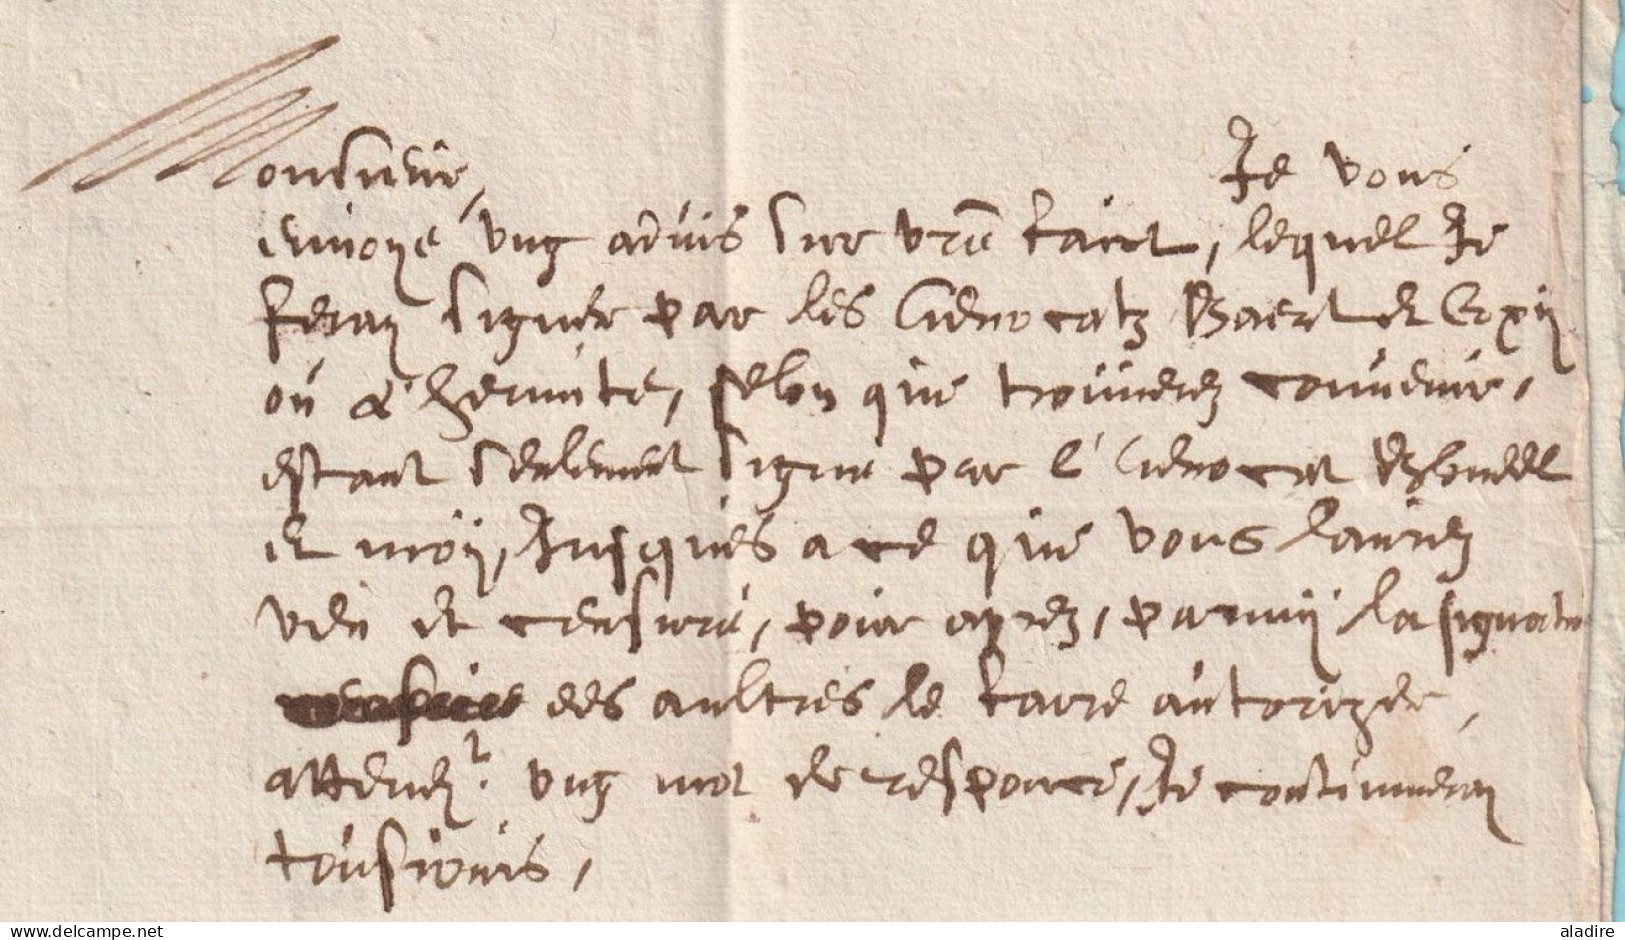 Monsieur,
Je vous
envoye ung advis sur vre faict, lequel Je
feray signer par les advocatz Baert et
ou l'hermite, selon que trouverez convenir,
estant seulement signe par l'advocat
et moy, Jusques a ce que vous l'aurez
veu et censuré, pour aprez, parmy la signatu
des aultres le faire autorizer,
attend. ung mot de responce, Je continueray
tousiours,
www.delcampe.net
aladire